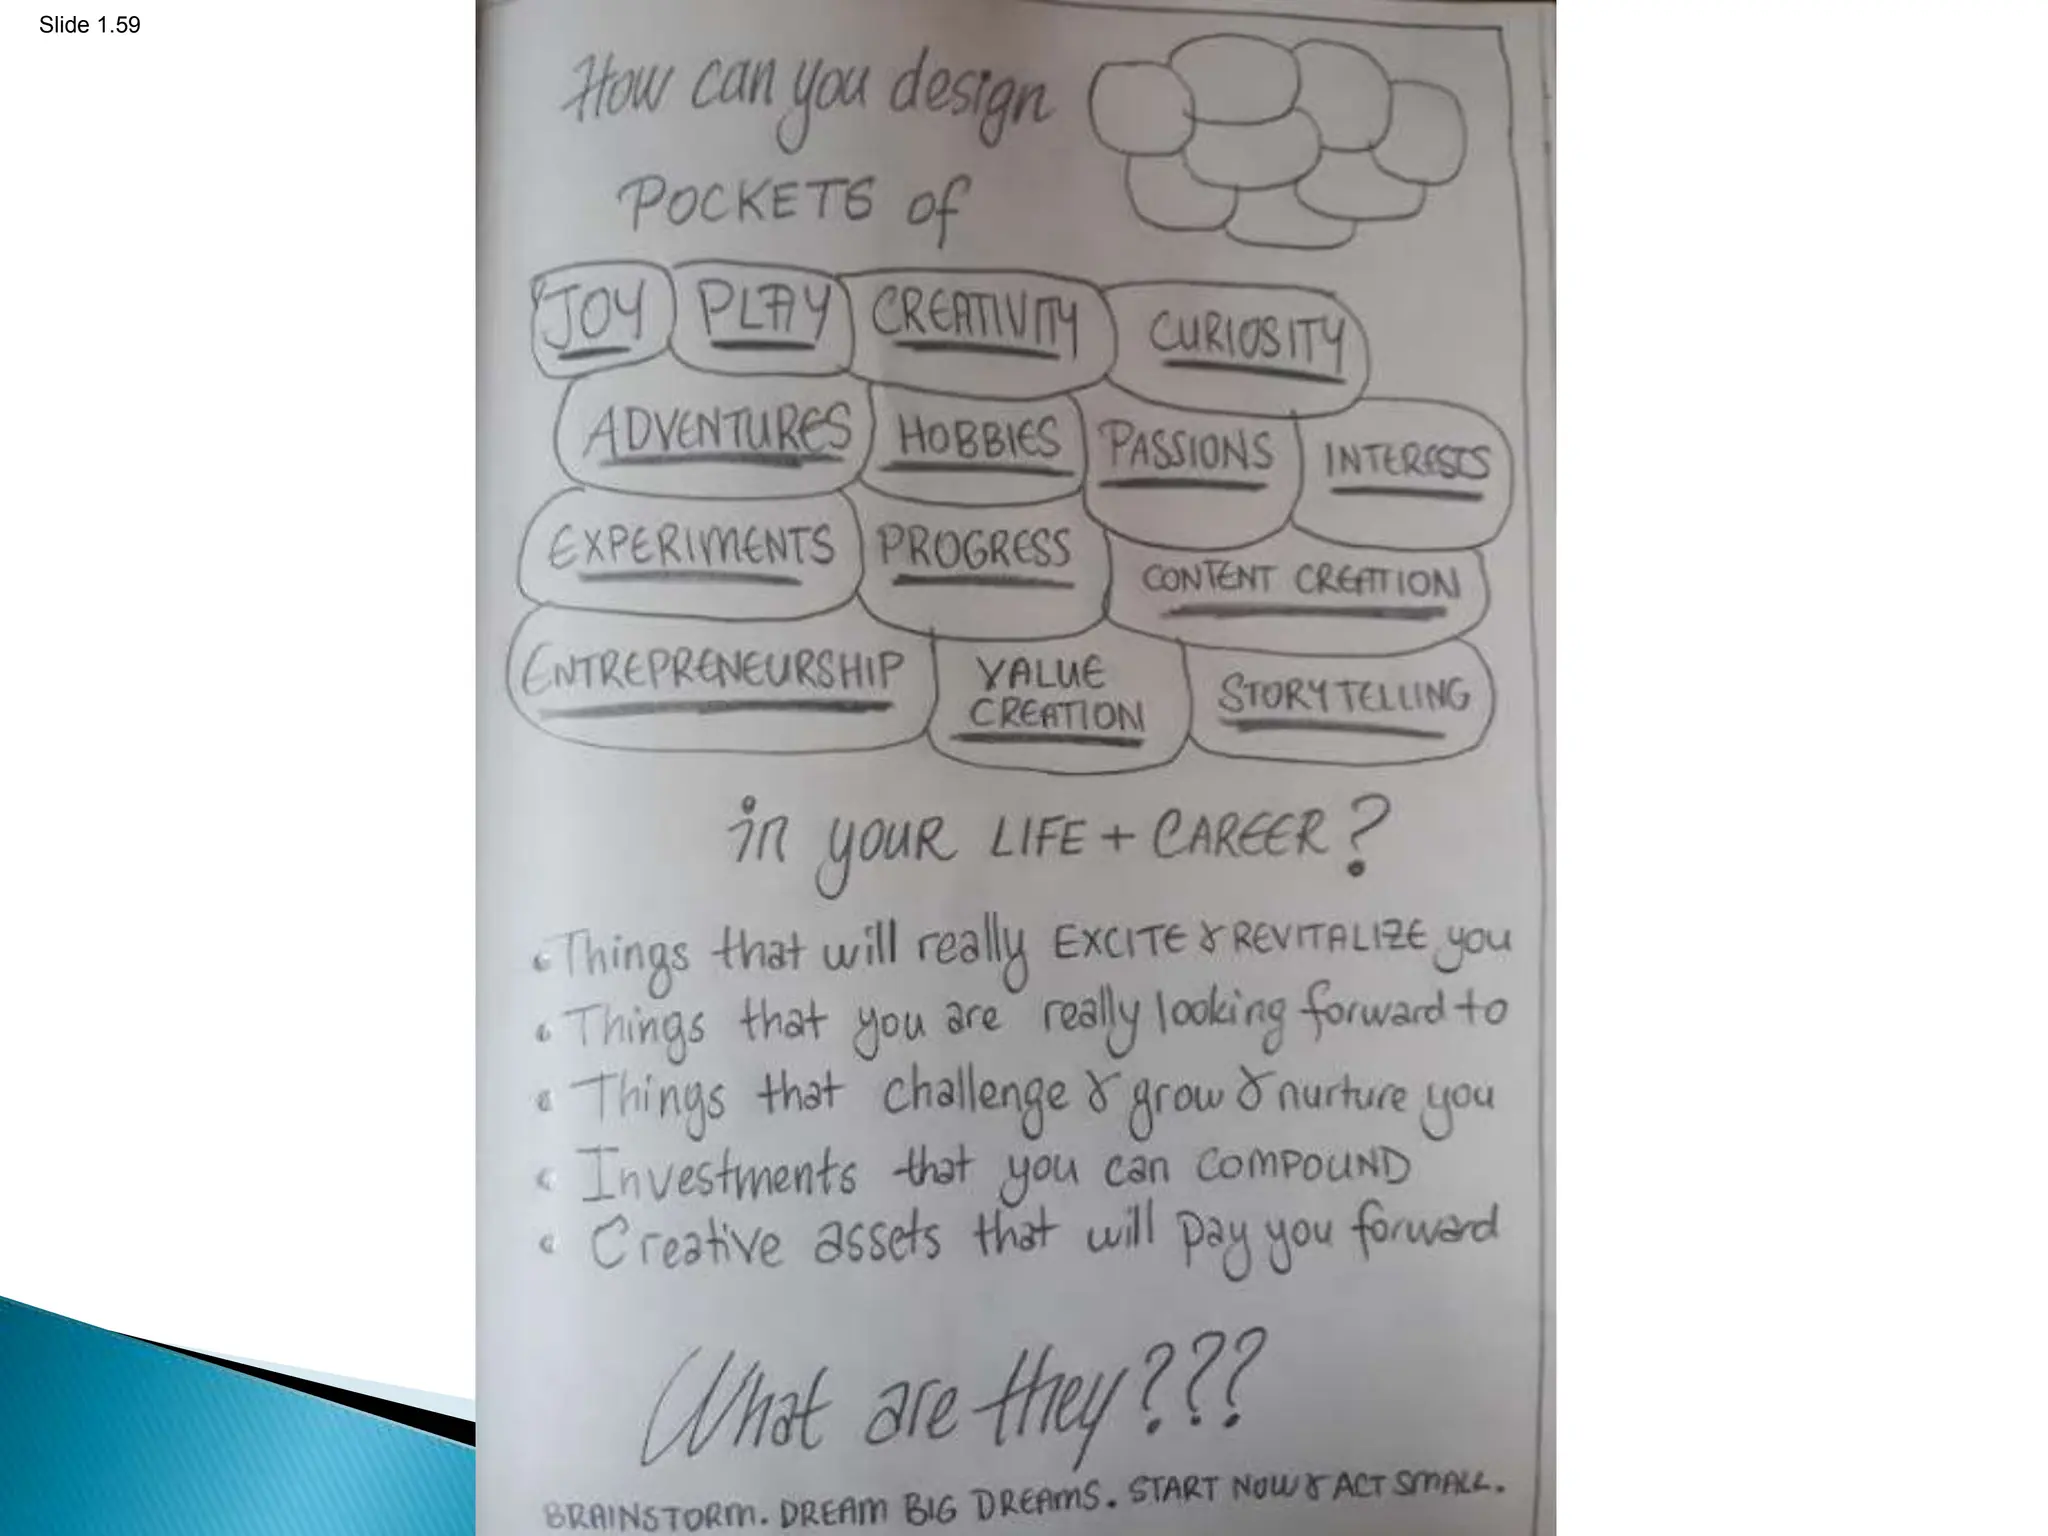 Slide 1.59
How can you design
POCKETS of
JOY PLAY CREATIVITY CURIOSITY
ADVENTURES HOBBIES PASSIONS INTERESTS
EXPERIMENTS PROGRESS CONTENT CREATION
ENTREPRENEURSHIP VALUE CREATION STORYTELLING
in YOUR LIFE + CAREER?
• Things that will really EXCITE & REVITALIZE you
• Things that you are really looking forward to
• Things that challenge & grow & nurture you
• Investments that you can COMPOUND
• Creative assets that will pay you forward
What are they???
BRAINSTORM. DREAM BIG DREAMS. START NOW & ACT SMALL.